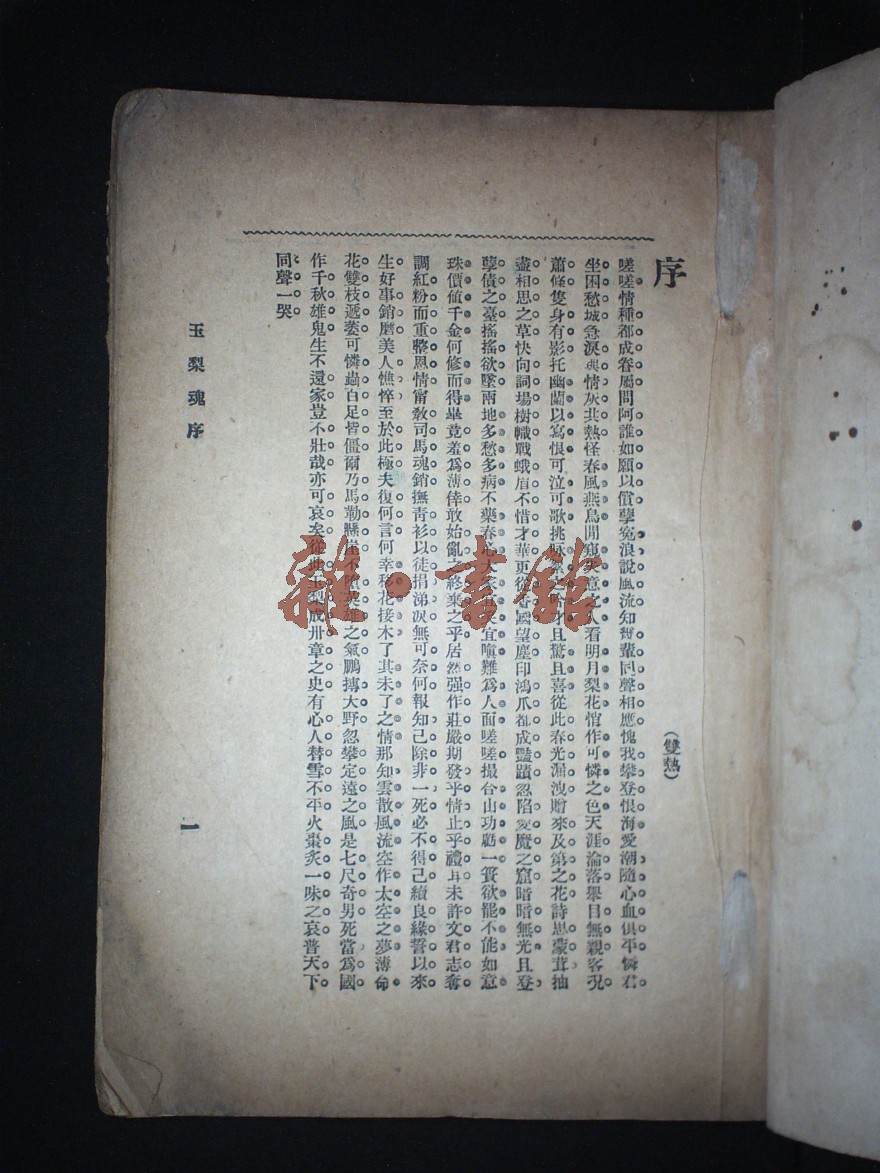 序
（雙熱）
嗟嗟情種都成眷屬問阿誰如願以償孽寃浪說風流知幾輩同聲相應愧我攀登恨海愛潮隨心血俱平憐君
坐困愁城急淚與情灰共熱怪春風燕鳥閒窺失意之人看明月梨花悄作可憐之色天涯淪落舉目無親客況
蕭條隻身有影托幽蘭以寫恨可泣可歌挑 且驚且喜從此春光漏洩贈來及第之花詩思蒙茸抽
盡相思之草快向詞塲樹幟戰蛾眉不惜才華更從香國望塵印鴻爪都成豔蹟忽陷愛魔之窟暗暗無光且登
孽債之臺搖搖欲墜兩地多愁多病不藥春心大家 宜嗔難爲人面嗟嗟撮台山功虧一簣欲罷不能如意
珠價値千金何修而得畢竟羞爲薄倖敢始亂之終棄之乎居然强作莊嚴期發乎情止乎禮耳未許文君志奪
調紅粉而重整恩情甯敎司馬魂銷撫靑衫以徒捐涕淚無可奈何報知己除非一死必不得已續良緣誓以來
生好事銷磨美人憔悴至於此極夫復何言何幸移花接木了其未了之情那知雲散風流空作太空之夢薄命
花雙枝遞萎可憐蟲白足皆僵爾乃馬勒懸崖不墮英雄之氣鵬摶大野忽攀定遠之風是七尺奇男死當爲國
作千秋雄鬼生不還家豈不壯哉亦可哀矣從此玉梨成卅章之史有心人替雪不平火棗炙一味之哀普天下
同聲一哭
玉梨魂序
一
雜·書館